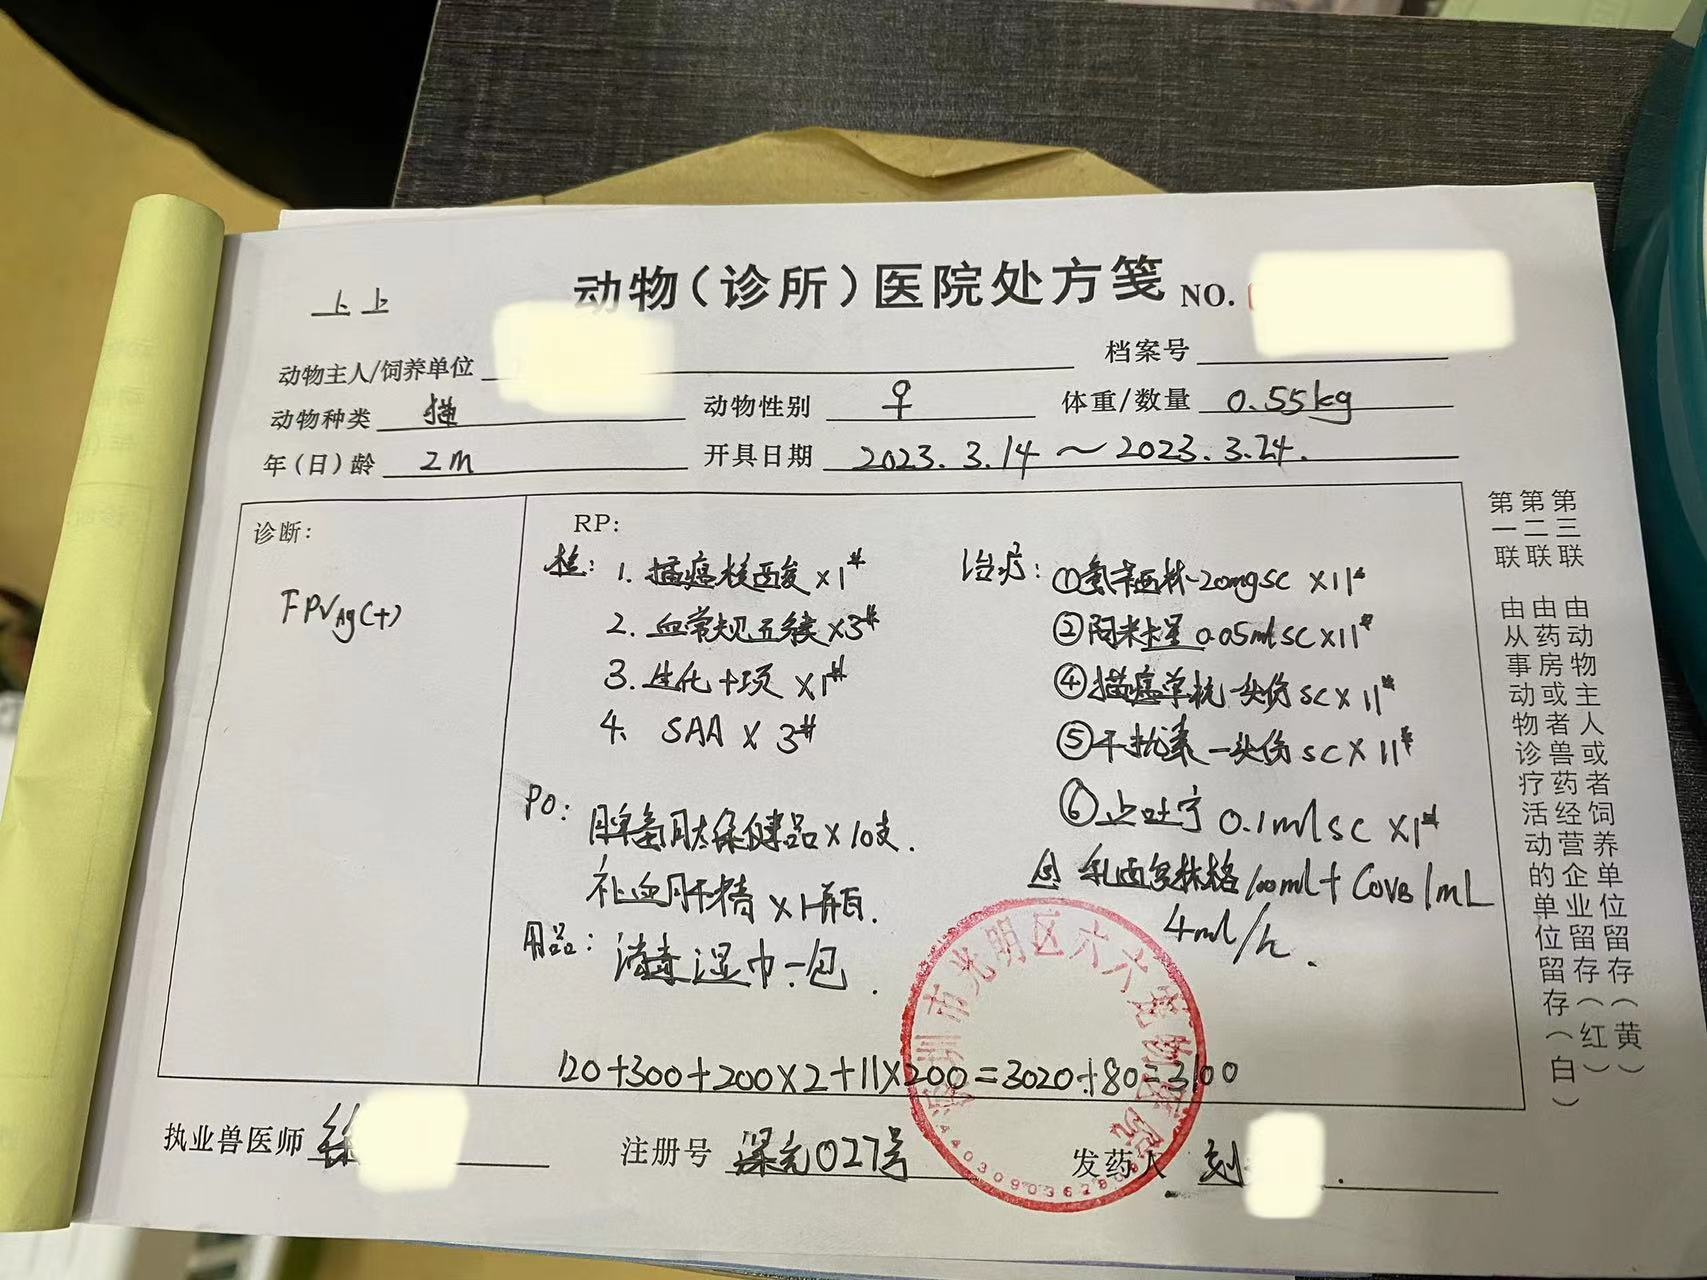 上上
动物（诊所）医院处方笺 NO.
动物主人/饲养单位
档案号
动物种类 猫
动物性别 ♀
体重/数量 0.55kg
年（日）龄 2m
开具日期 2023.3.14～2023.3.24.
诊断：
FPVAg(+)
RP:
检：1. 猫瘟核酸×1#
2. 血常规五分类×3#
3. 生化十项×1#
4. SAA×3#
PO：
×10支.
补血肝精×1瓶.
用品：消毒湿巾一包.
治疗：①氨苄西林-20mg sc ×11#
②阿米卡星0.05ml sc×11#
④猫瘟单抗一头份sc×11#
⑤干扰素一头份sc×11#
⑥止吐宁0.1ml sc ×1#
乳酸林格100ml+CoVB 1mL
4ml/h.
120+300+200×2+11×200=3020+80=3100
执业兽医师 徐
注册号 027号
发药人 刘
第一联 由从事动物诊疗活动的单位留存（白）
第二联 由药房或者兽药经营企业留存（红）
第三联 由动物主人或者饲养单位留存（黄）
深圳市光明区六六宠物医院